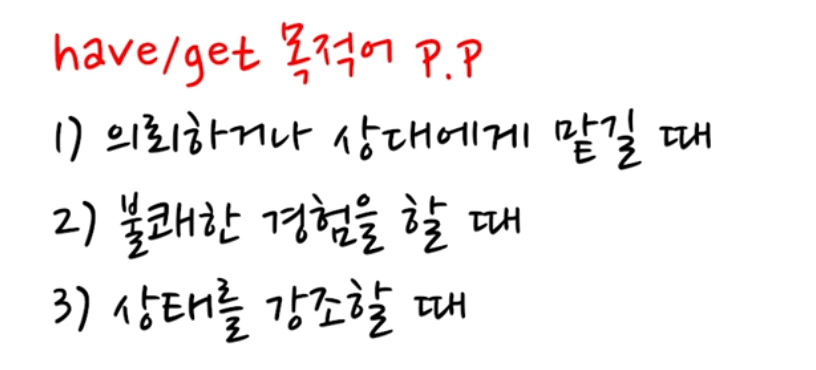 have/get 목적어 P.P
1) 의뢰하거나 상대에게 맡길 때
2) 불쾌한 경험을 할 때
3) 상태를 강조할 때